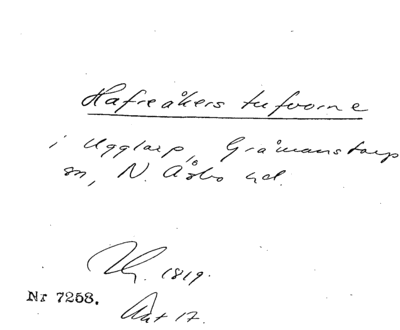 Hafreåkers tufvorne
i Ugglarp, Gråmanstorp
sn, N. Åsbo hd.
1819.
Nr 7258.
Akt 17.